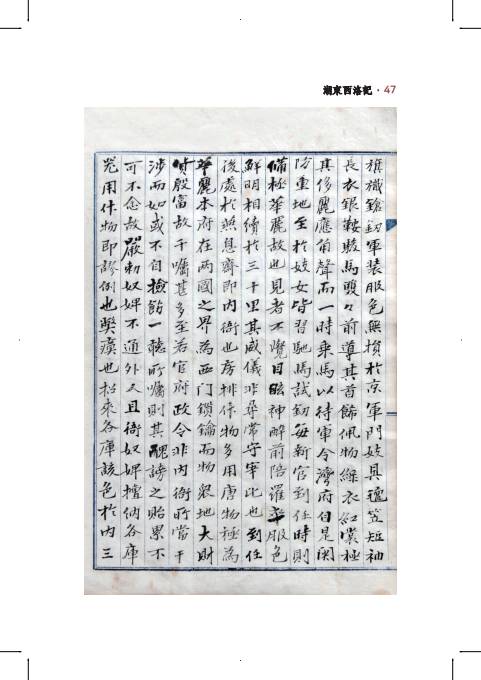 湖東西洛記 · 47
旗織鎗釰軍装服色無損於京軍門妓具氊笠短袖
長衣銀鞍駿馬雙々前導其首飾佩物綠衣紅裳極
其侈麗應角聲而一時乘馬以待軍令灣府自是関
防重地至於妓女皆習馳馬試釰每新官到任時則
備極華麗故也見者不覺目眩神醉前陪羅卒服色
鮮明相續於三十里其威儀非尋常守宰比也到任
後處於無息齋即内衙也房排什物多用唐物極為
華麗本府在兩國之界為西門鎖鑰而物衆地大財
貨殷富故干囑甚多至若官府政令非内衙所當干
涉而如或不自撿飭一聽所囑則其醜謗之貽累不
可不念故嚴勅奴婢不通外又且衙奴婢擅納各庫
器用什物即謬例也弊瘼也招來各庫該色於内三